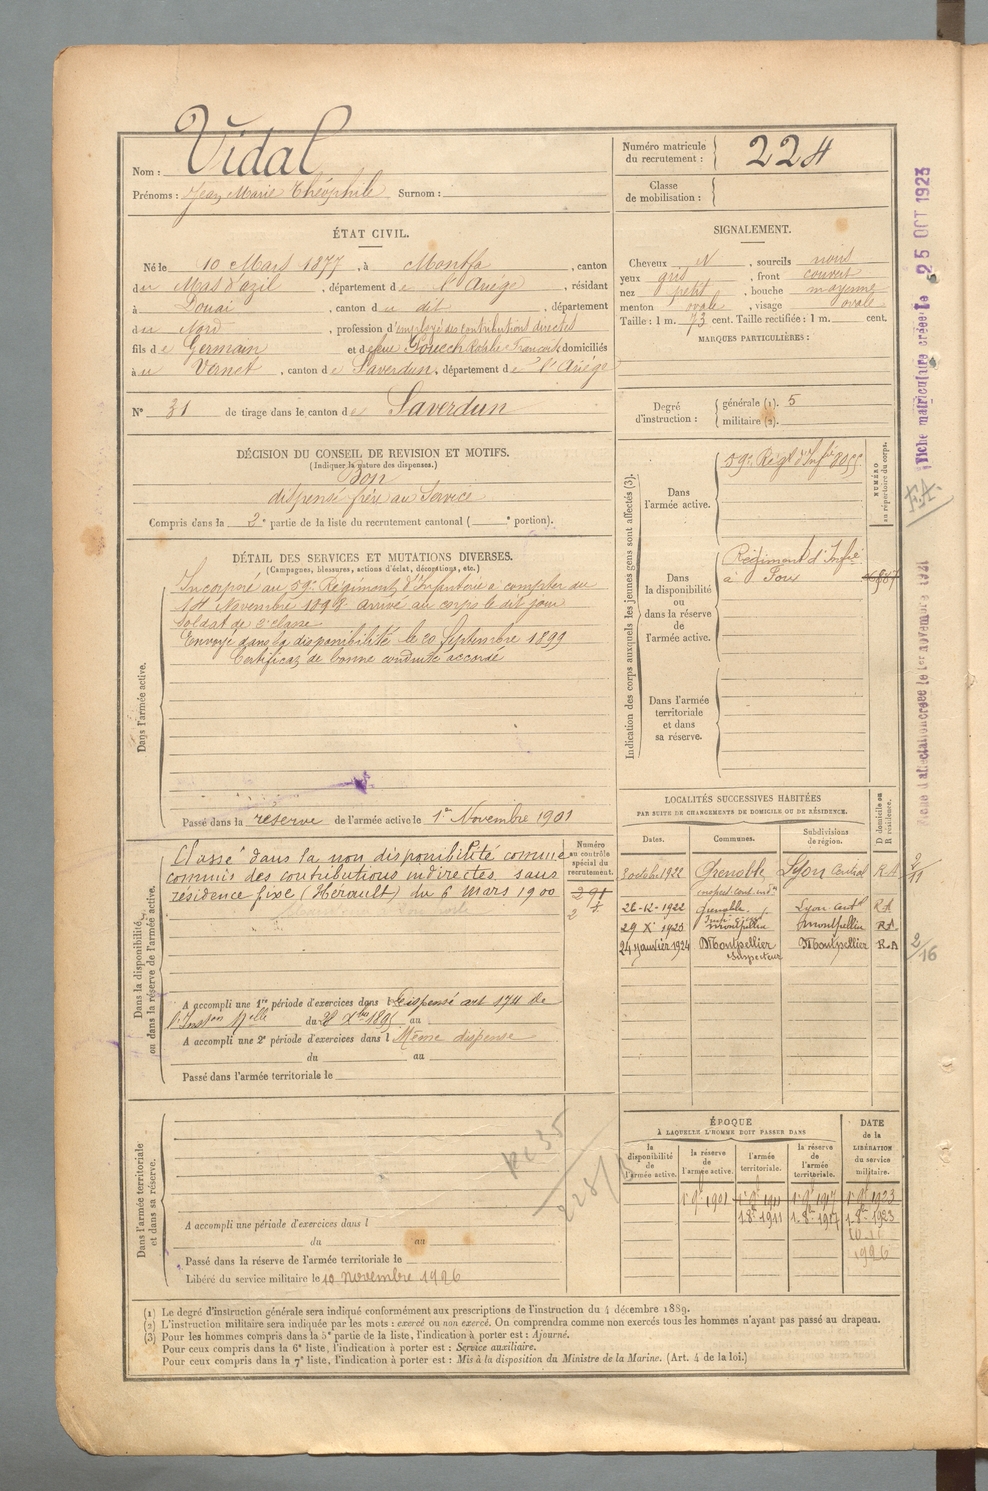 Nom : Vidal
Prénoms : Jean Marie Théophile Surnom :
Numéro matricule du recrutement : 224
Classe de mobilisation :
ÉTAT CIVIL.
Né le 10 Mars 1877, à Montfa, canton
du Mas d'azil, département de l'Ariège, résidant
à Douai, canton du dit, département
du Nord, profession d'employé des contributions directes
fils de Germain et de feue Goucch Rosalie Françoise domiciliés
à Vernet, canton de Saverdun, département de l'Ariège
N° 31 de tirage dans le canton de Saverdun
SIGNALEMENT.
Cheveux N, sourcils noirs
yeux gris, front couvert
nez petit, bouche moyenne
menton ovale, visage ovale
Taille : 1 m. 73 cent. Taille rectifiée : 1 m. cent.
MARQUES PARTICULIÈRES :
Degré d'instruction : générale (1). 5
militaire (2).
DÉCISION DU CONSEIL DE REVISION ET MOTIFS.
(Indiquer la nature des dispenses.)
Bon
dispensé frère au Service
Compris dans la 2e partie de la liste du recrutement cantonal ( e portion).
DÉTAIL DES SERVICES ET MUTATIONS DIVERSES.
(Campagnes, blessures, actions d'éclat, décorations, etc.)
Dans l'armée active.
Incorporé au 59e Régiment d'Infanterie à compter du
14 Novembre 1898 arrivé au corps le dit jour
soldat de 2e classe
Envoyé dans la disponibilité le 20 Septembre 1899
Certificat de bonne conduite accordé
Passé dans la réserve de l'armée active le 1er Novembre 1901
Indication des corps auxquels les jeunes gens sont affectés (3).
NUMÉRO au répertoire du corps.
Dans l'armée active.
59e Régt d'Infie
Dans la disponibilité ou dans la réserve de l'armée active.
Régiment d'Infie
à Foix
Dans l'armée territoriale et dans sa réserve.
Dans la disponibilité ou dans la réserve de l'armée active.
Classé dans la non disponibilité comme
commis des contributions indirectes sans
résidence fixe (Hérault) du 6 mars 1900
Numéro au contrôle spécial du recrutement.
291
A accompli une 1re période d'exercices dans l Dispensé art 174 de
l'Inston Melle du 28 Xbre 1895 au
A accompli une 2e période d'exercices dans l Même dispense
du au
Passé dans l'armée territoriale le
LOCALITÉS SUCCESSIVES HABITÉES
PAR SUITE DE CHANGEMENTS DE DOMICILE OU DE RÉSIDENCE.
Dates. Communes. Subdivisions de région. D domicile ou R résidence.
2 octobre 1922 Grenoble Lyon Central R.A
28-12-1922 Grenoble Lyon centl RA
29 X 1923 Montpellier Montpellier RA
24 Janvier 1924 Montpellier Montpellier R.A
Inspecteur
2/11
2/16
Dans l'armée territoriale et dans sa réserve.
A accompli une période d'exercices dans l
du au
Passé dans la réserve de l'armée territoriale le
Libéré du service militaire le 10 novembre 1926
ÉPOQUE
À LAQUELLE L'HOMME DOIT PASSER DANS
DATE de la LIBÉRATION du service militaire.
la disponibilité de l'armée active. la réserve de l'armée active. l'armée territoriale. la réserve de l'armée territoriale.
1er 9bre 1901 1er 9bre 1911 1er 9bre 1917 1er 9bre 1923
1-8bre 1911 1-8bre 1917 1-8bre 1923
1926
(1) Le degré d'instruction générale sera indiqué conformément aux prescriptions de l'instruction du 4 décembre 1889.
(2) L'instruction militaire sera indiquée par les mots : exercé ou non exercé. On comprendra comme non exercés tous les hommes n'ayant pas passé au drapeau.
(3) Pour les hommes compris dans la 5e partie de la liste, l'indication à porter est : Ajourné.
Pour ceux compris dans la 6e liste, l'indication à porter est : Service auxiliaire.
Pour ceux compris dans la 7e liste, l'indication à porter est : Mis à la disposition du Ministre de la Marine. (Art. 4 de la loi.)
Fiche matriculaire créée le 25 OCT 1923
F.A.
Fiche d'affectation créée le 1er novembre 1921